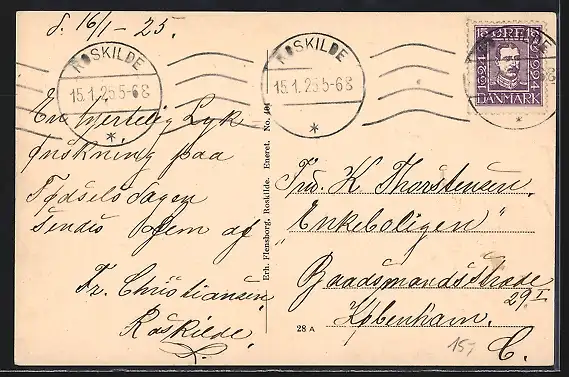 d. 16/1 - 25.
ROSKILDE
15.1.25 5-6 8
*
ROSKILDE
15.1.25 5-6 8
*
15 ØRE 15
1624 1924
DANMARK
*
En hjertelig Lyk
ønskning paa
Fødselsdagen
sendes Dem af
Fr. Christiansen,
Roskilde.
Erh. Flensborg, Roskilde. Eneret. No. 401
28 A
Frü. K Thorstensen.
"Enkeboligen"
Baadsmandsstræde
29 I
København.
C.
15,